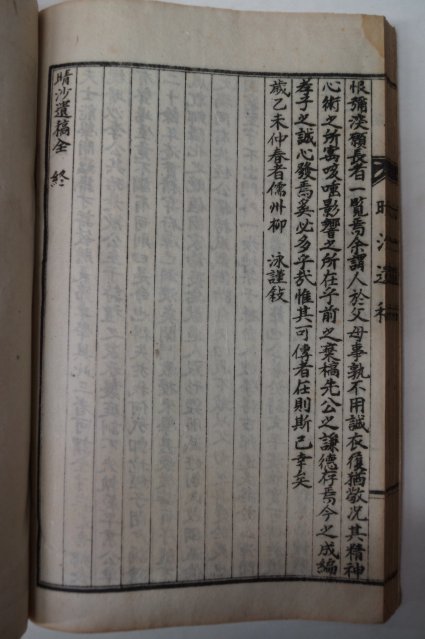 恨彌深願長者一覽焉余謂人於父母事孰不用誠衣履猶敬况其精神
心術之所寓咳唾影響之所在乎前之棄稿先公之謙德存焉今之成編
孝子之誠心發焉奚必多乎哉惟其可傳者在則斯已幸矣
歲乙未仲春者儒州柳 泳謹敍
晴沙遺稿全 終
晴沙遺稿